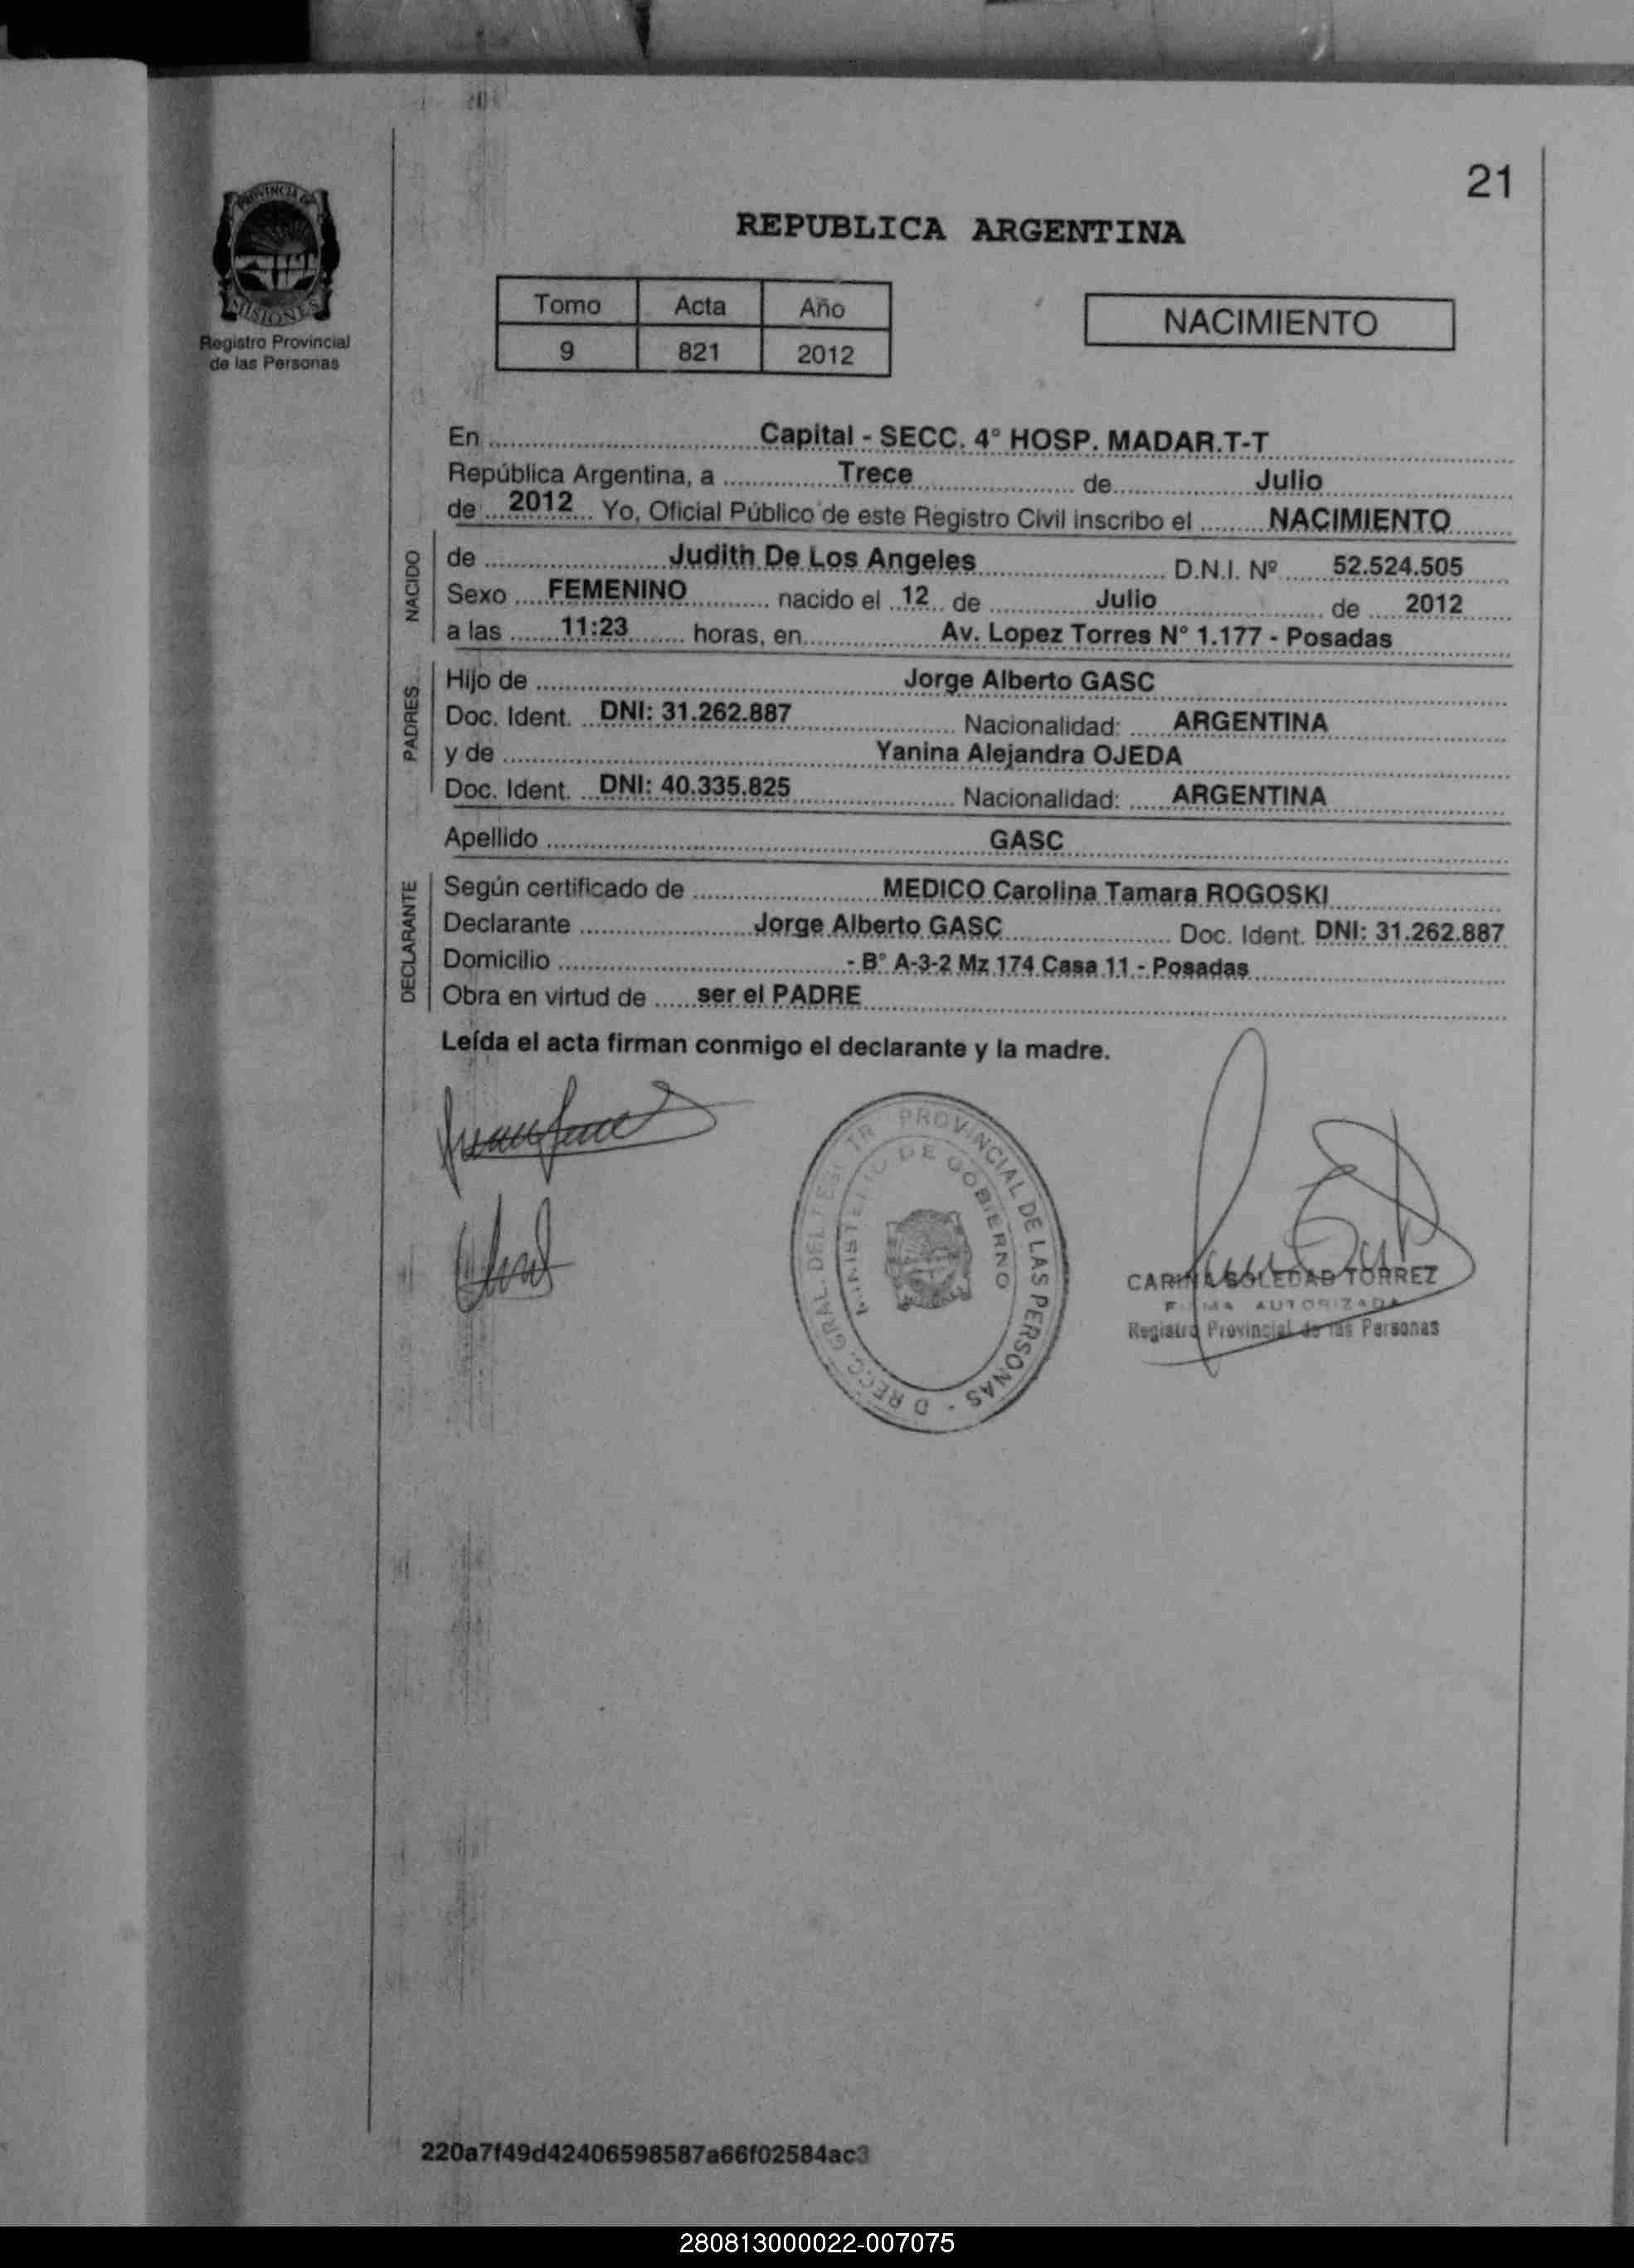 21
PROVINCIA DE
MISIONES
Registro Provincial
de las Personas
REPUBLICA ARGENTINA
Tomo Acta Año
9 821 2012
NACIMIENTO
En Capital - SECC. 4° HOSP. MADAR.T-T
República Argentina, a Trece de Julio
de 2012 Yo, Oficial Público de este Registro Civil inscribo el NACIMIENTO
NACIDO
de Judith De Los Angeles D.N.I. Nº 52.524.505
Sexo FEMENINO nacido el 12 de Julio de 2012
a las 11:23 horas, en Av. Lopez Torres N° 1.177 - Posadas
PADRES
Hijo de Jorge Alberto GASC
Doc. Ident. DNI: 31.262.887 Nacionalidad: ARGENTINA
y de Yanina Alejandra OJEDA
Doc. Ident. DNI: 40.335.825 Nacionalidad: ARGENTINA
Apellido GASC
DECLARANTE
Según certificado de MEDICO Carolina Tamara ROGOSKI
Declarante Jorge Alberto GASC Doc. Ident. DNI: 31.262.887
Domicilio - B° A-3-2 Mz 174 Casa 11 - Posadas
Obra en virtud de ser el PADRE
Leída el acta firman conmigo el declarante y la madre.
PROVINCIAL DE LAS PERSONAS -
GRAL. DEL
MINISTERIO DE GOBIERNO
CARINA SOLEDAD TORREZ
FIRMA AUTORIZADA
Registro Provincial de las Personas
220a7f49d42406598587a66f02584ac3
280813000022-007075